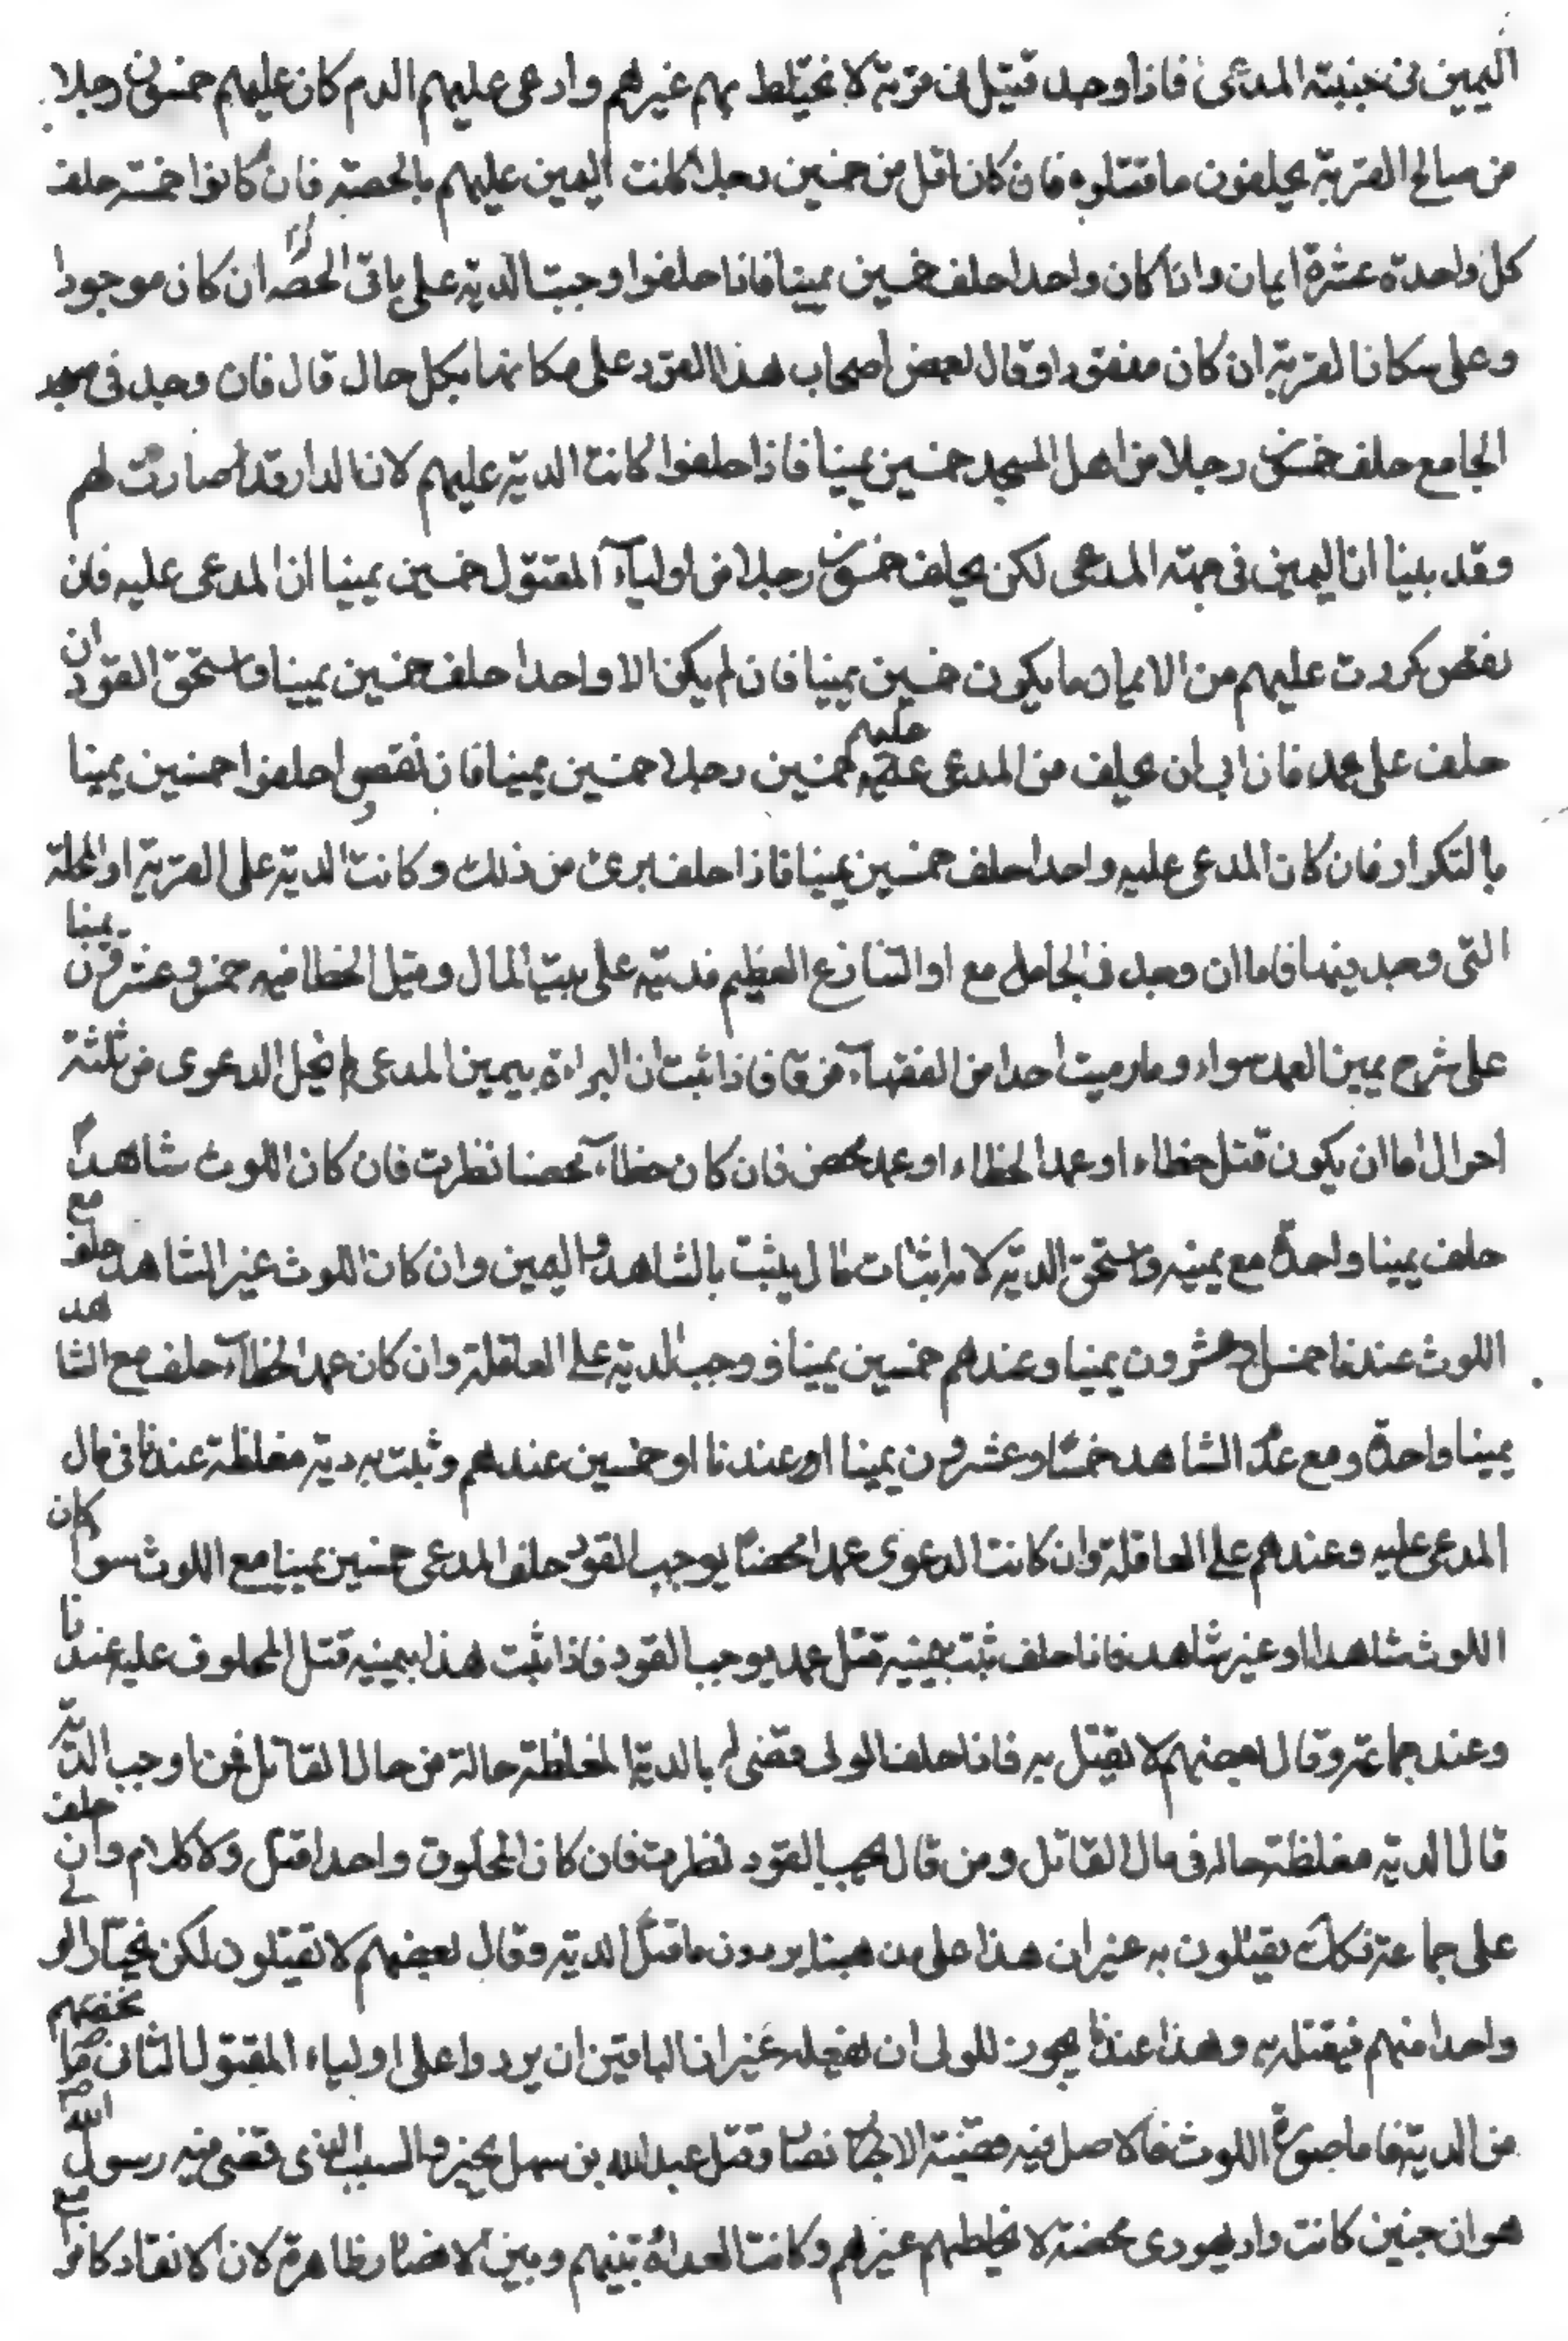 اليمين في جنبته المدعى فاذا وجد قتيل في قرية لا يختلط بهم غيرهم وادعى عليهم الدم كان عليهم خمسون رجلا
من صالح القرية يحلفون ما قتلوه فان كان اقل من خمسين رجلا كانت اليمين عليهم بالحصة فان كانوا خمسة حلف
كل واحدة عشرة ايمان واذا كان واحدا حلف خمسين يمينا فاذا حلفوا وجبت الدية على باقي الحصه ان كان موجودا
وعلى سكان القرية ان كان مفقودا وقال بعض اصحاب هذا القود على سكانها بكل حال قال فان وجد في مسجد
الجامع حلف خمسون رجلا من اهل المسجد خمسين يمينا فاذا حلفوا كانت الدية عليهم لان الدار قد صارت لهم
وقد بينا ان اليمين في جهته المدعى لكن يحلف خمسون رجلا من اولياء المقتول خمسين يمينا ان المدعى عليه فان
نقص كررت عليهم من الايمان ما يكون خمسين يمينا فان لم يكن الا واحدا حلف خمسين يمينا واستحق القود ان
حلف على عمد فان ابى ان يحلف من المدعى عليهم خمسين رجلا خمسين يمينا فان نقصوا حلفوا خمسين يمينا
بالتكرار فان كان المدعى عليه واحدا حلف خمسين يمينا فاذا حلف برئ من ذلك وكانت الدية على القرية او المحلة
التي وجد فيها فاما ان وجد في الجامع او الشارع العظيم فديته على بيت المال وقتيل الخطا فيه خمس وعشرون يمينا
على شرح يمين العمد سواء وما رميت احدا من الفقهاء فرق فاذا ثبت ان البراءة بيمين المدعى لم يخل الدعوى من ثلثة
احوال اما ان يكون قتل خطاء او عمد الخطاء او عمد محض فان كان خطاء محضا نظرت فان كان اللوث شاهدا
حلف يمينا واحدة مع يمينه واستحق الدية لانه اثبات مال يثبت بالشاهد واليمين وان كان اللوث غير الشاهد حلف مع
اللوث عندنا خمسا وعشرون يمينا وعندهم خمسين يمينا ووجب الدية على العاقلة وان كان عمد الخطاء حلف مع الشاهد
يمينا واحدة ومع عدم الشاهد خمسا وعشرون يمينا عندنا او خمسين عندهم وثبت به دية مغلظة عندنا في مال
المدعى عليه وعندهم على العاقلة وان كانت الدعوى عمدا محضا يوجب القود حلف المدعى خمسين يمينا مع اللوث سوا كان
اللوث شاهدا او غير شاهد فاذا حلف ثبت بيمينه قتل عمد يوجب القود فاذا ثبت هذا بيمينه قتل المحلوف عليه عندنا
وعند جماعة وقال بعضهم لا يقتل به فاذا حلف الولي قضى له بالدية المغلظة حالة من حال القاتل فمن اوجب الدية
قال الدية مغلظة حاله في مال القاتل ومن قال يجب القود نظرت فان كان المحلوف واحدا قتل ولا كلام وان حلف
على جماعة فكك يقتلون به غير ان هذا على مذهبنا يردون فاضل الدية وقال بعضهم لا يقتلون لكن يختار الولي
واحدا منهم فيقتله به وهذا عندنا يجوز للولي ان يفعله غير ان الباقين ان يردوا على اولياء المقتول الثاني ما يخصهم
من الدية فاما صورة اللوث فالاصل فيه قضية الانصار وقتل عبد الله بن سهل بخيبر والسبب الذي قضى فيه رسول الله
هو ان خيبر كانت دار يهودي محضة لا يخالطهم غيرهم وكانت العداوة بينهم وبين الانصار ظاهرة لان الانصار كانوا مع